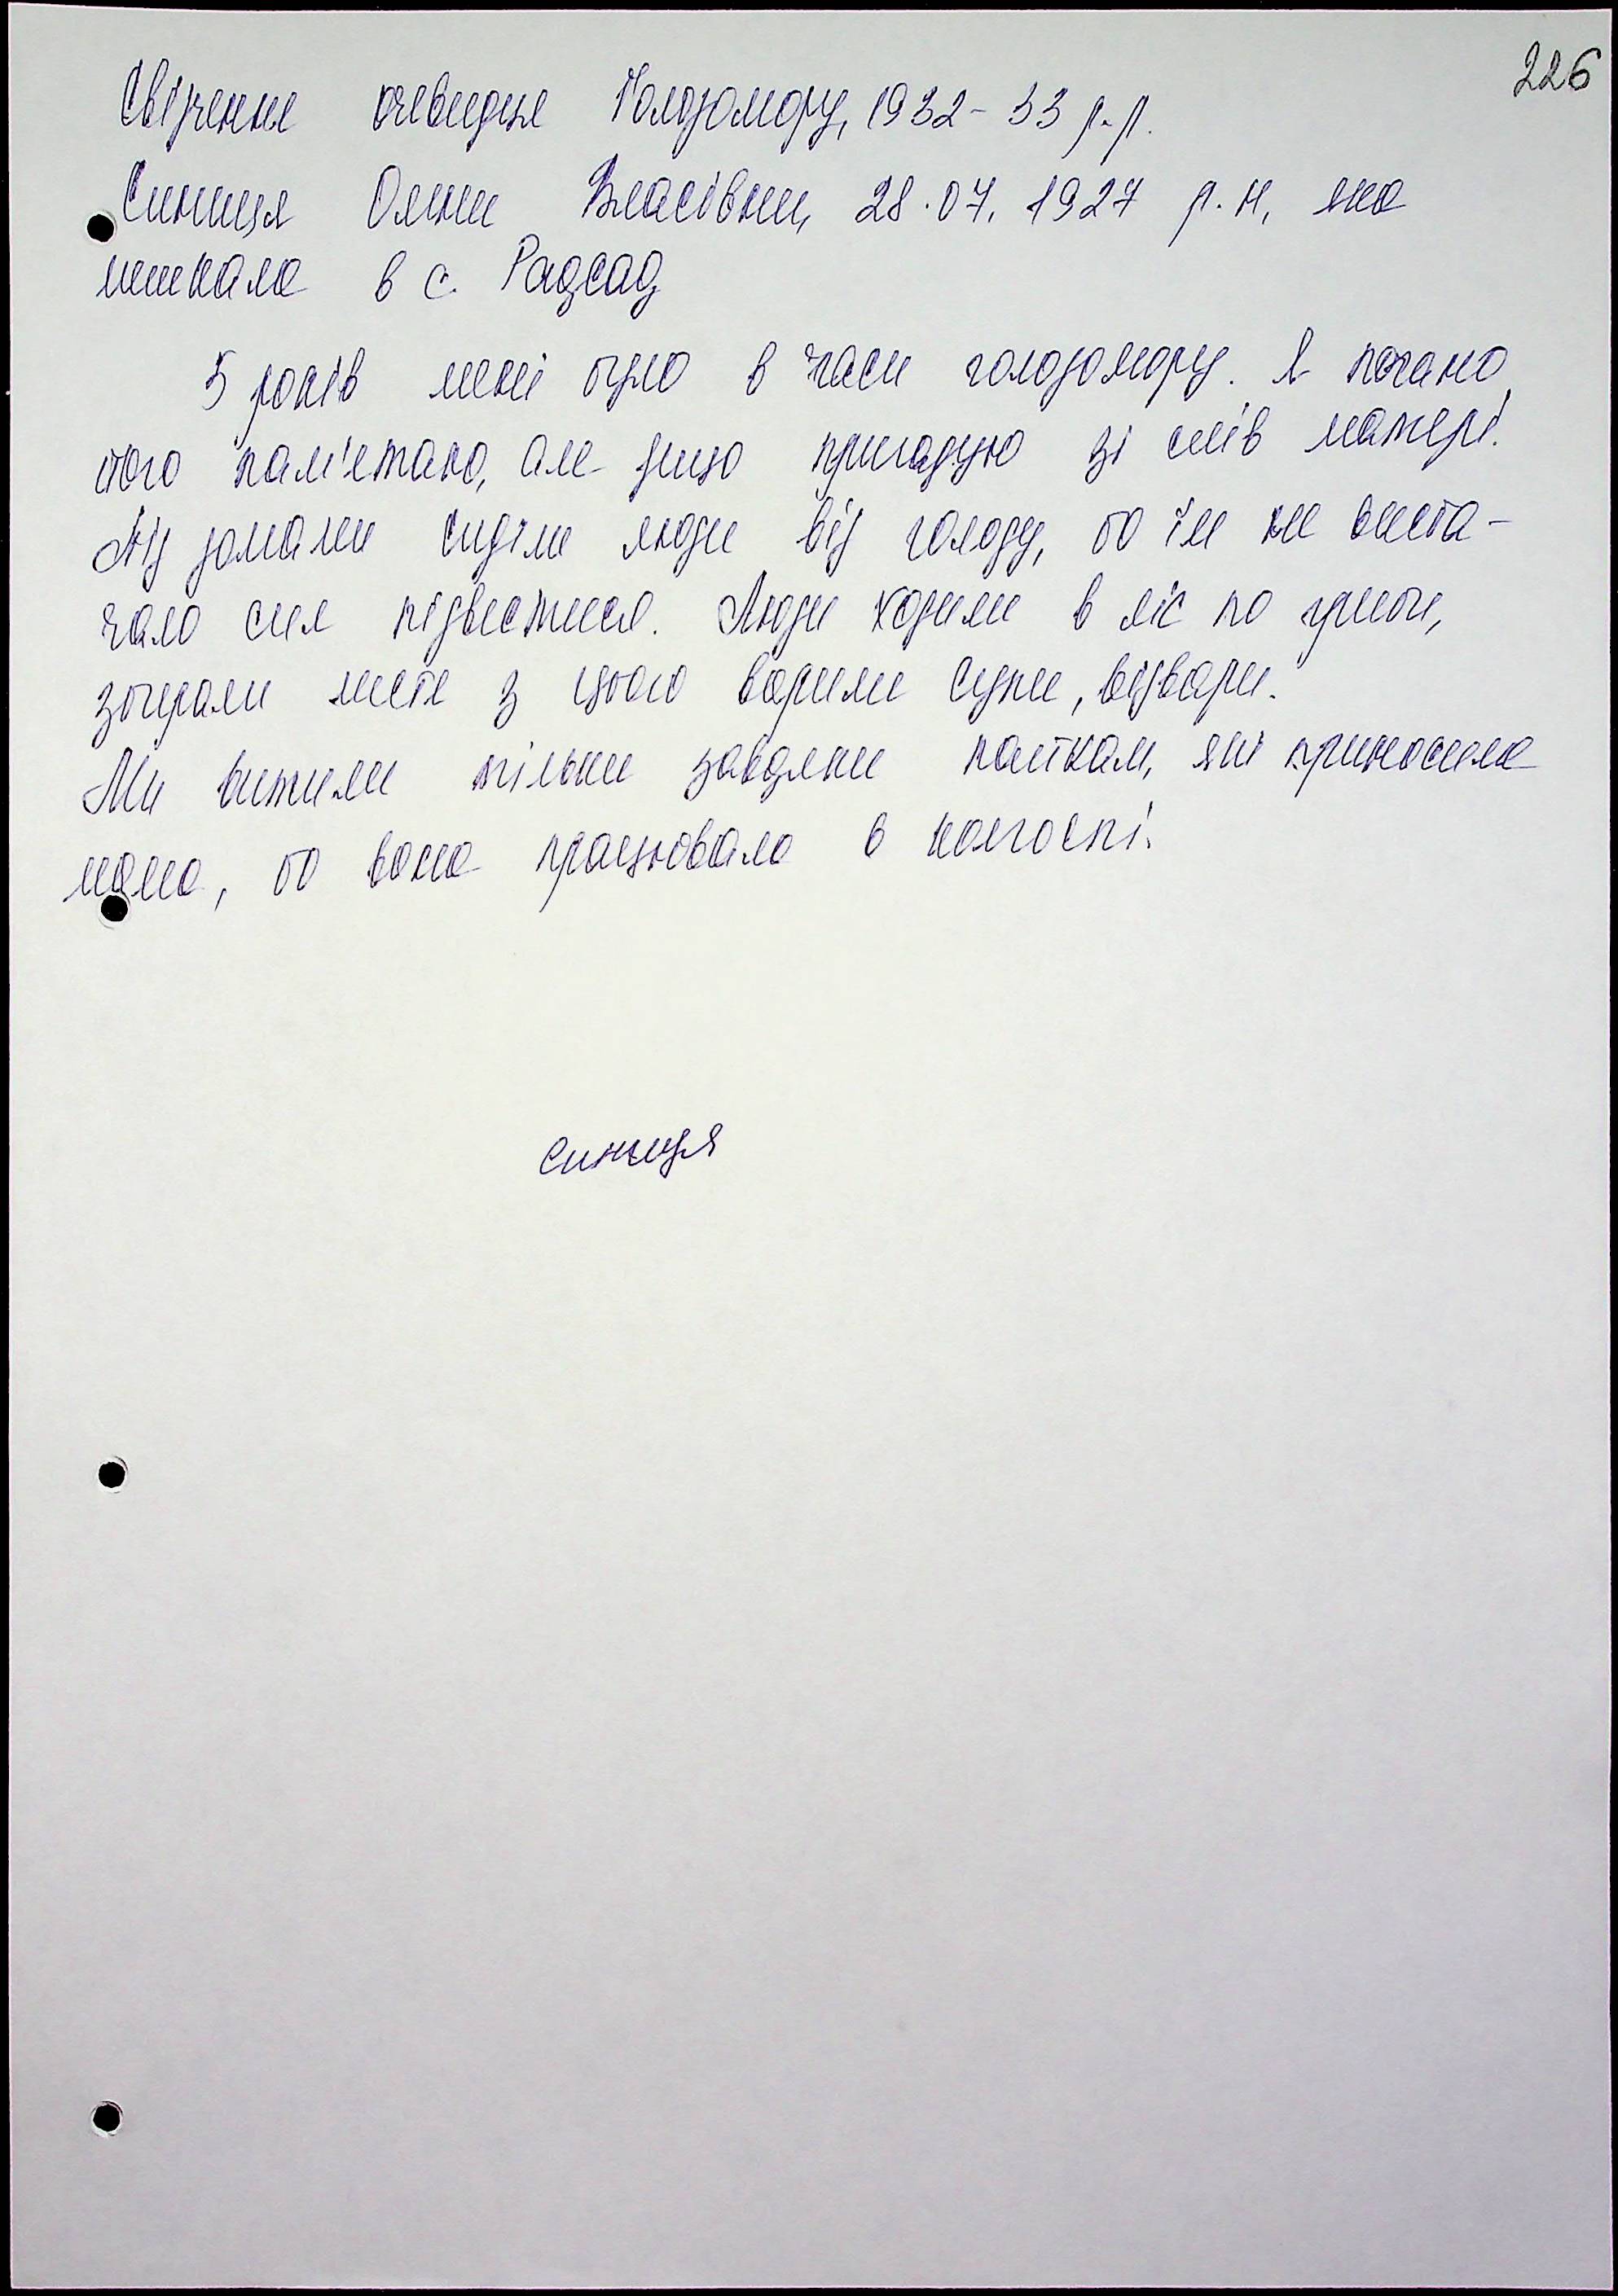 226
Свідчення очевидця Голодомору, 1932-33 р.р.
Синиця Олени Власівни, 28.07.1927 р.н, яка
мешкала в с. Радсад
5 років мені було в часи голодомору. Я погано
того пам'ятаю, але дещо пригадую зі слів матері.
Під домами сиділи люди від голоду, бо їм не виста-
чало сил підвестися. Люди ходили в ліс по гриби,
збирали листя з цього варили супи, відвари.
Ми вижили тільки завдяки пайкам, які приносила
мама, бо вона працювала в колгоспі.
Синиця